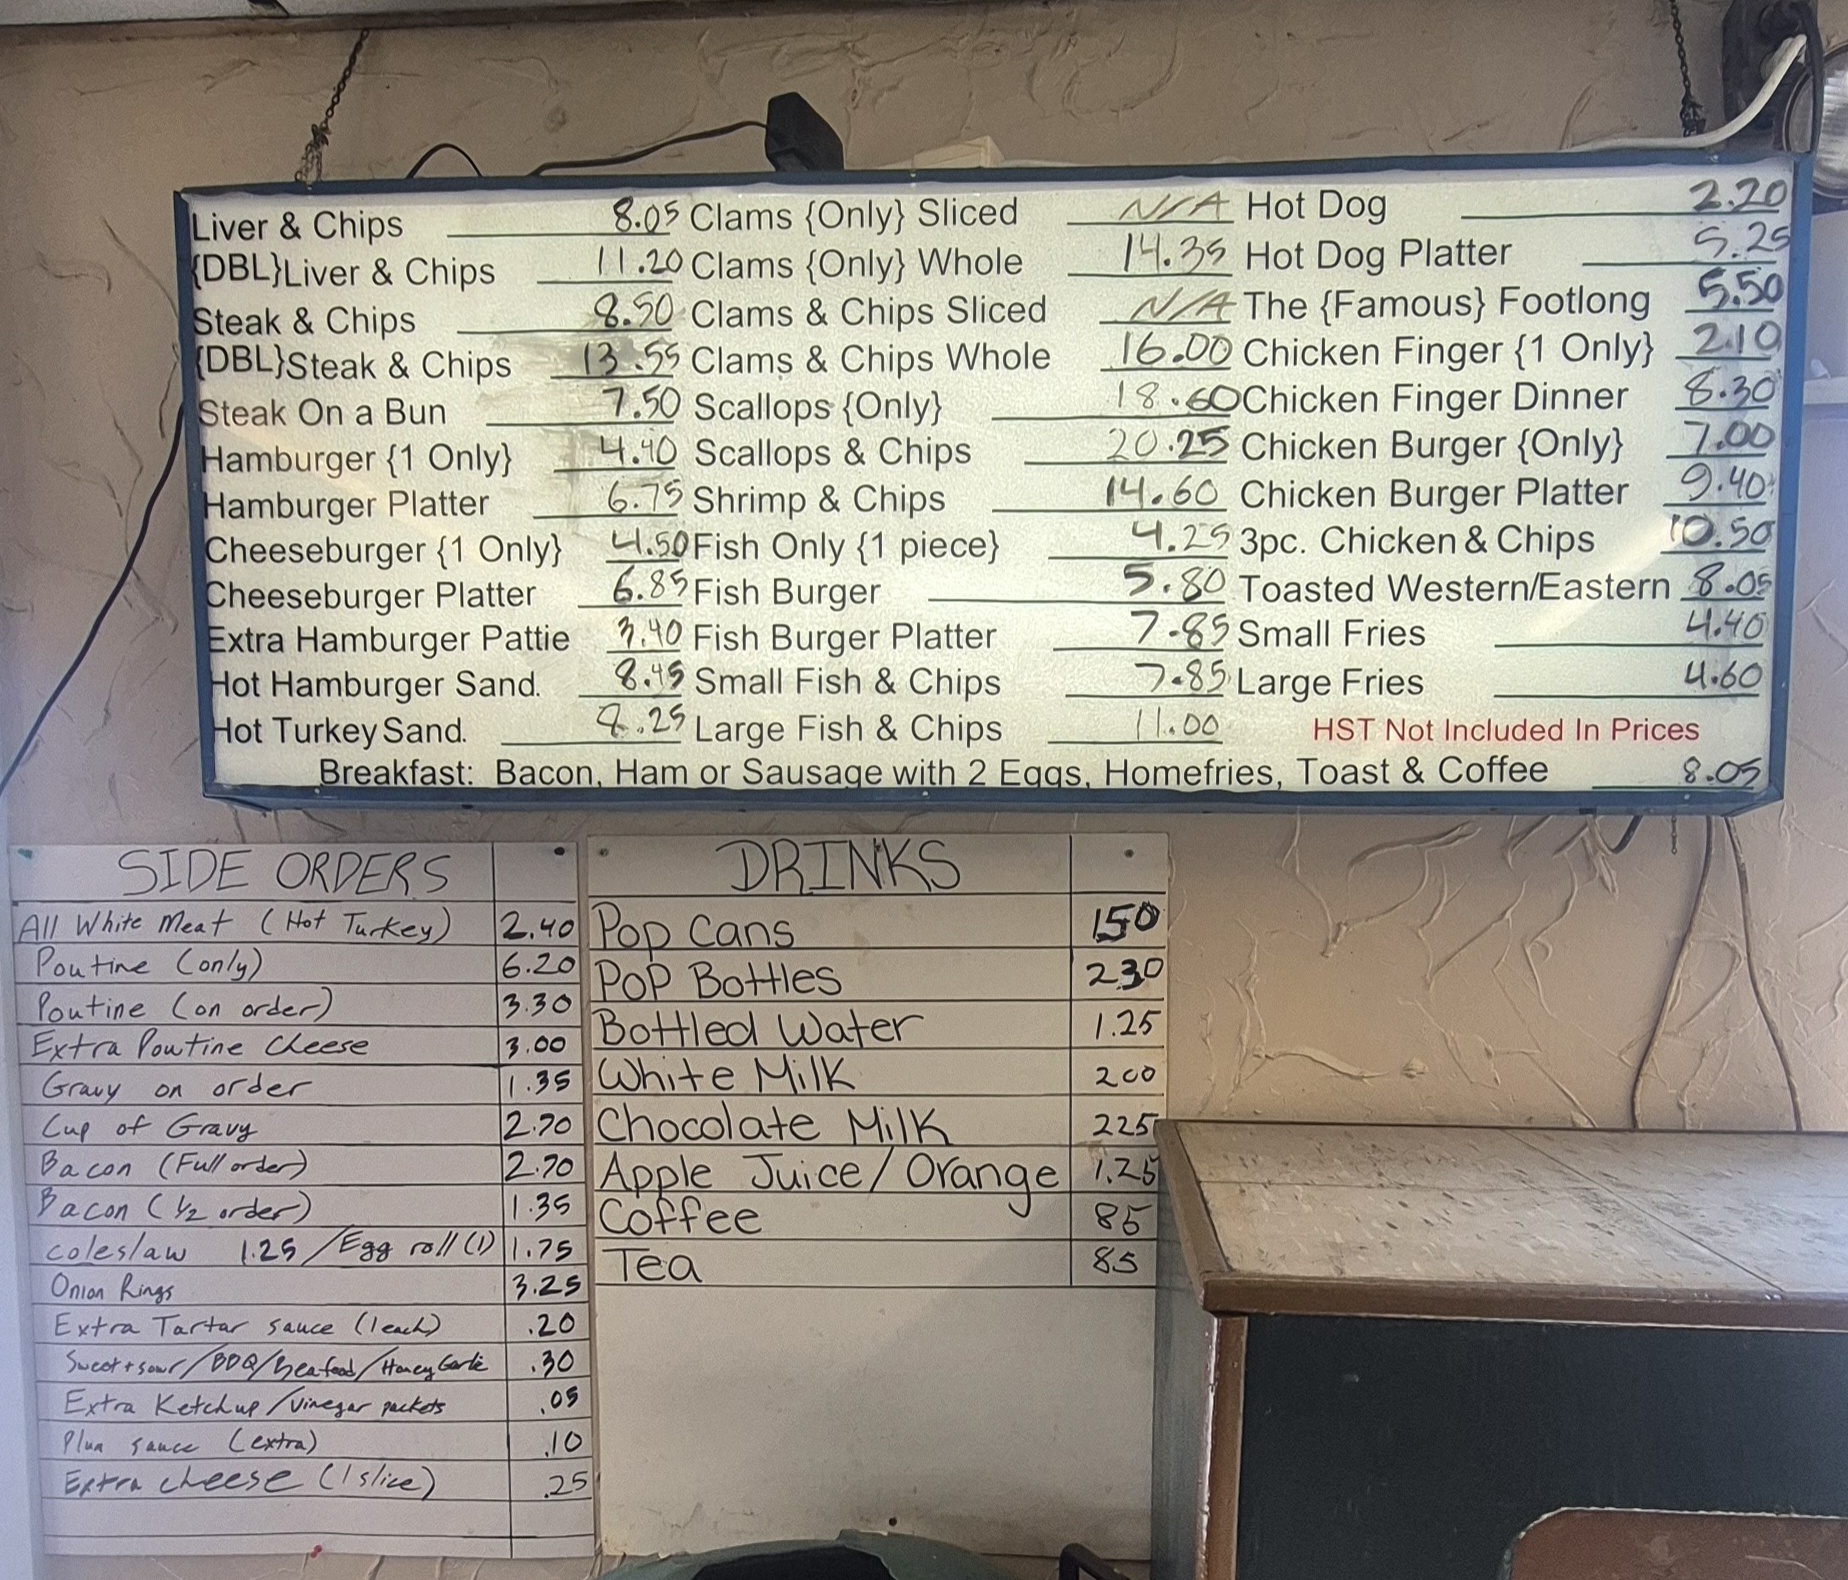 Liver & Chips 8.05 Clams {Only} Sliced N/A Hot Dog 2.20
{DBL}Liver & Chips 11.20 Clams {Only} Whole 14.35 Hot Dog Platter 5.25
Steak & Chips 8.50 Clams & Chips Sliced N/A The {Famous} Footlong 5.50
{DBL}Steak & Chips 13.55 Clams & Chips Whole 16.00 Chicken Finger {1 Only} 2.10
Steak On a Bun 7.50 Scallops {Only} 18.60 Chicken Finger Dinner 8.30
Hamburger {1 Only} 4.40 Scallops & Chips 20.25 Chicken Burger {Only} 7.00
Hamburger Platter 6.75 Shrimp & Chips 14.60 Chicken Burger Platter 9.40
Cheeseburger {1 Only} 4.50 Fish Only {1 piece} 4.25 3pc. Chicken & Chips 10.50
Cheeseburger Platter 6.85 Fish Burger 5.80 Toasted Western/Eastern 8.05
Extra Hamburger Pattie 3.40 Fish Burger Platter 7.85 Small Fries 4.40
Hot Hamburger Sand. 8.45 Small Fish & Chips 7.85 Large Fries 4.60
Hot Turkey Sand. 8.25 Large Fish & Chips 11.00 HST Not Included In Prices
Breakfast: Bacon, Ham or Sausage with 2 Eggs, Homefries, Toast & Coffee 8.05
SIDE ORDERS
All White Meat (Hot Turkey) 2.40
Poutine (only) 6.20
Poutine (on order) 3.30
Extra Poutine Cheese 3.00
Gravy on order 1.35
Cup of Gravy 2.70
Bacon (Full order) 2.70
Bacon (1/2 order) 1.35
coleslaw 1.25 /Egg roll (1) 1.75
Onion Rings 3.25
Extra Tartar sauce (1 each) .20
Sweet + sour/BBQ/Seafood/Honey Garlic .30
Extra Ketchup/Vinegar packets .05
Plum sauce (extra) .10
Extra cheese (1 slice) .25
DRINKS
Pop Cans 150
Pop Bottles 230
Bottled Water 1.25
White Milk 200
Chocolate Milk 225
Apple Juice/Orange 1.25
Coffee 85
Tea 85